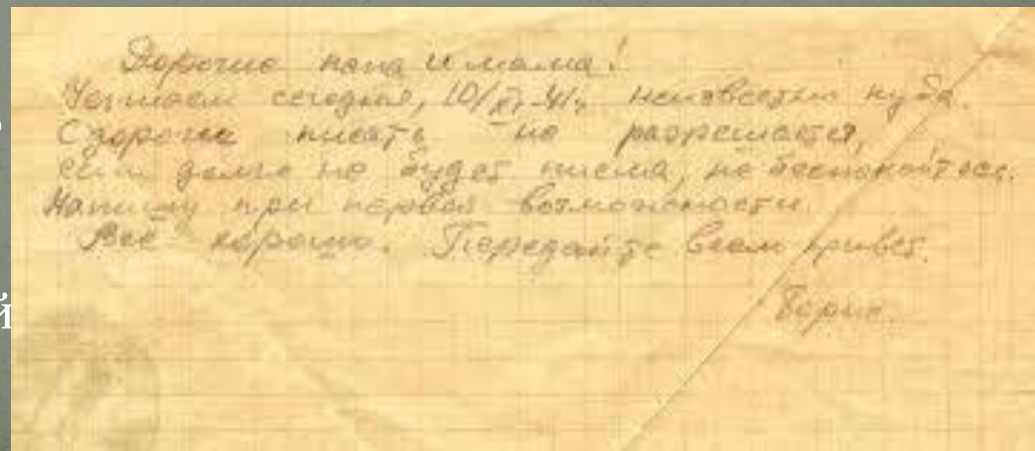 Дорогие папа и мама!
Уезжаем сегодня, 10/XI 41г. неизвестно куда.
С дороги писать не разрешается,
если долго не будет письма, не беспокойтесь.
Напишу при первой возможности.
Всё хорошо. Передайте всем привет.
Борис.
й